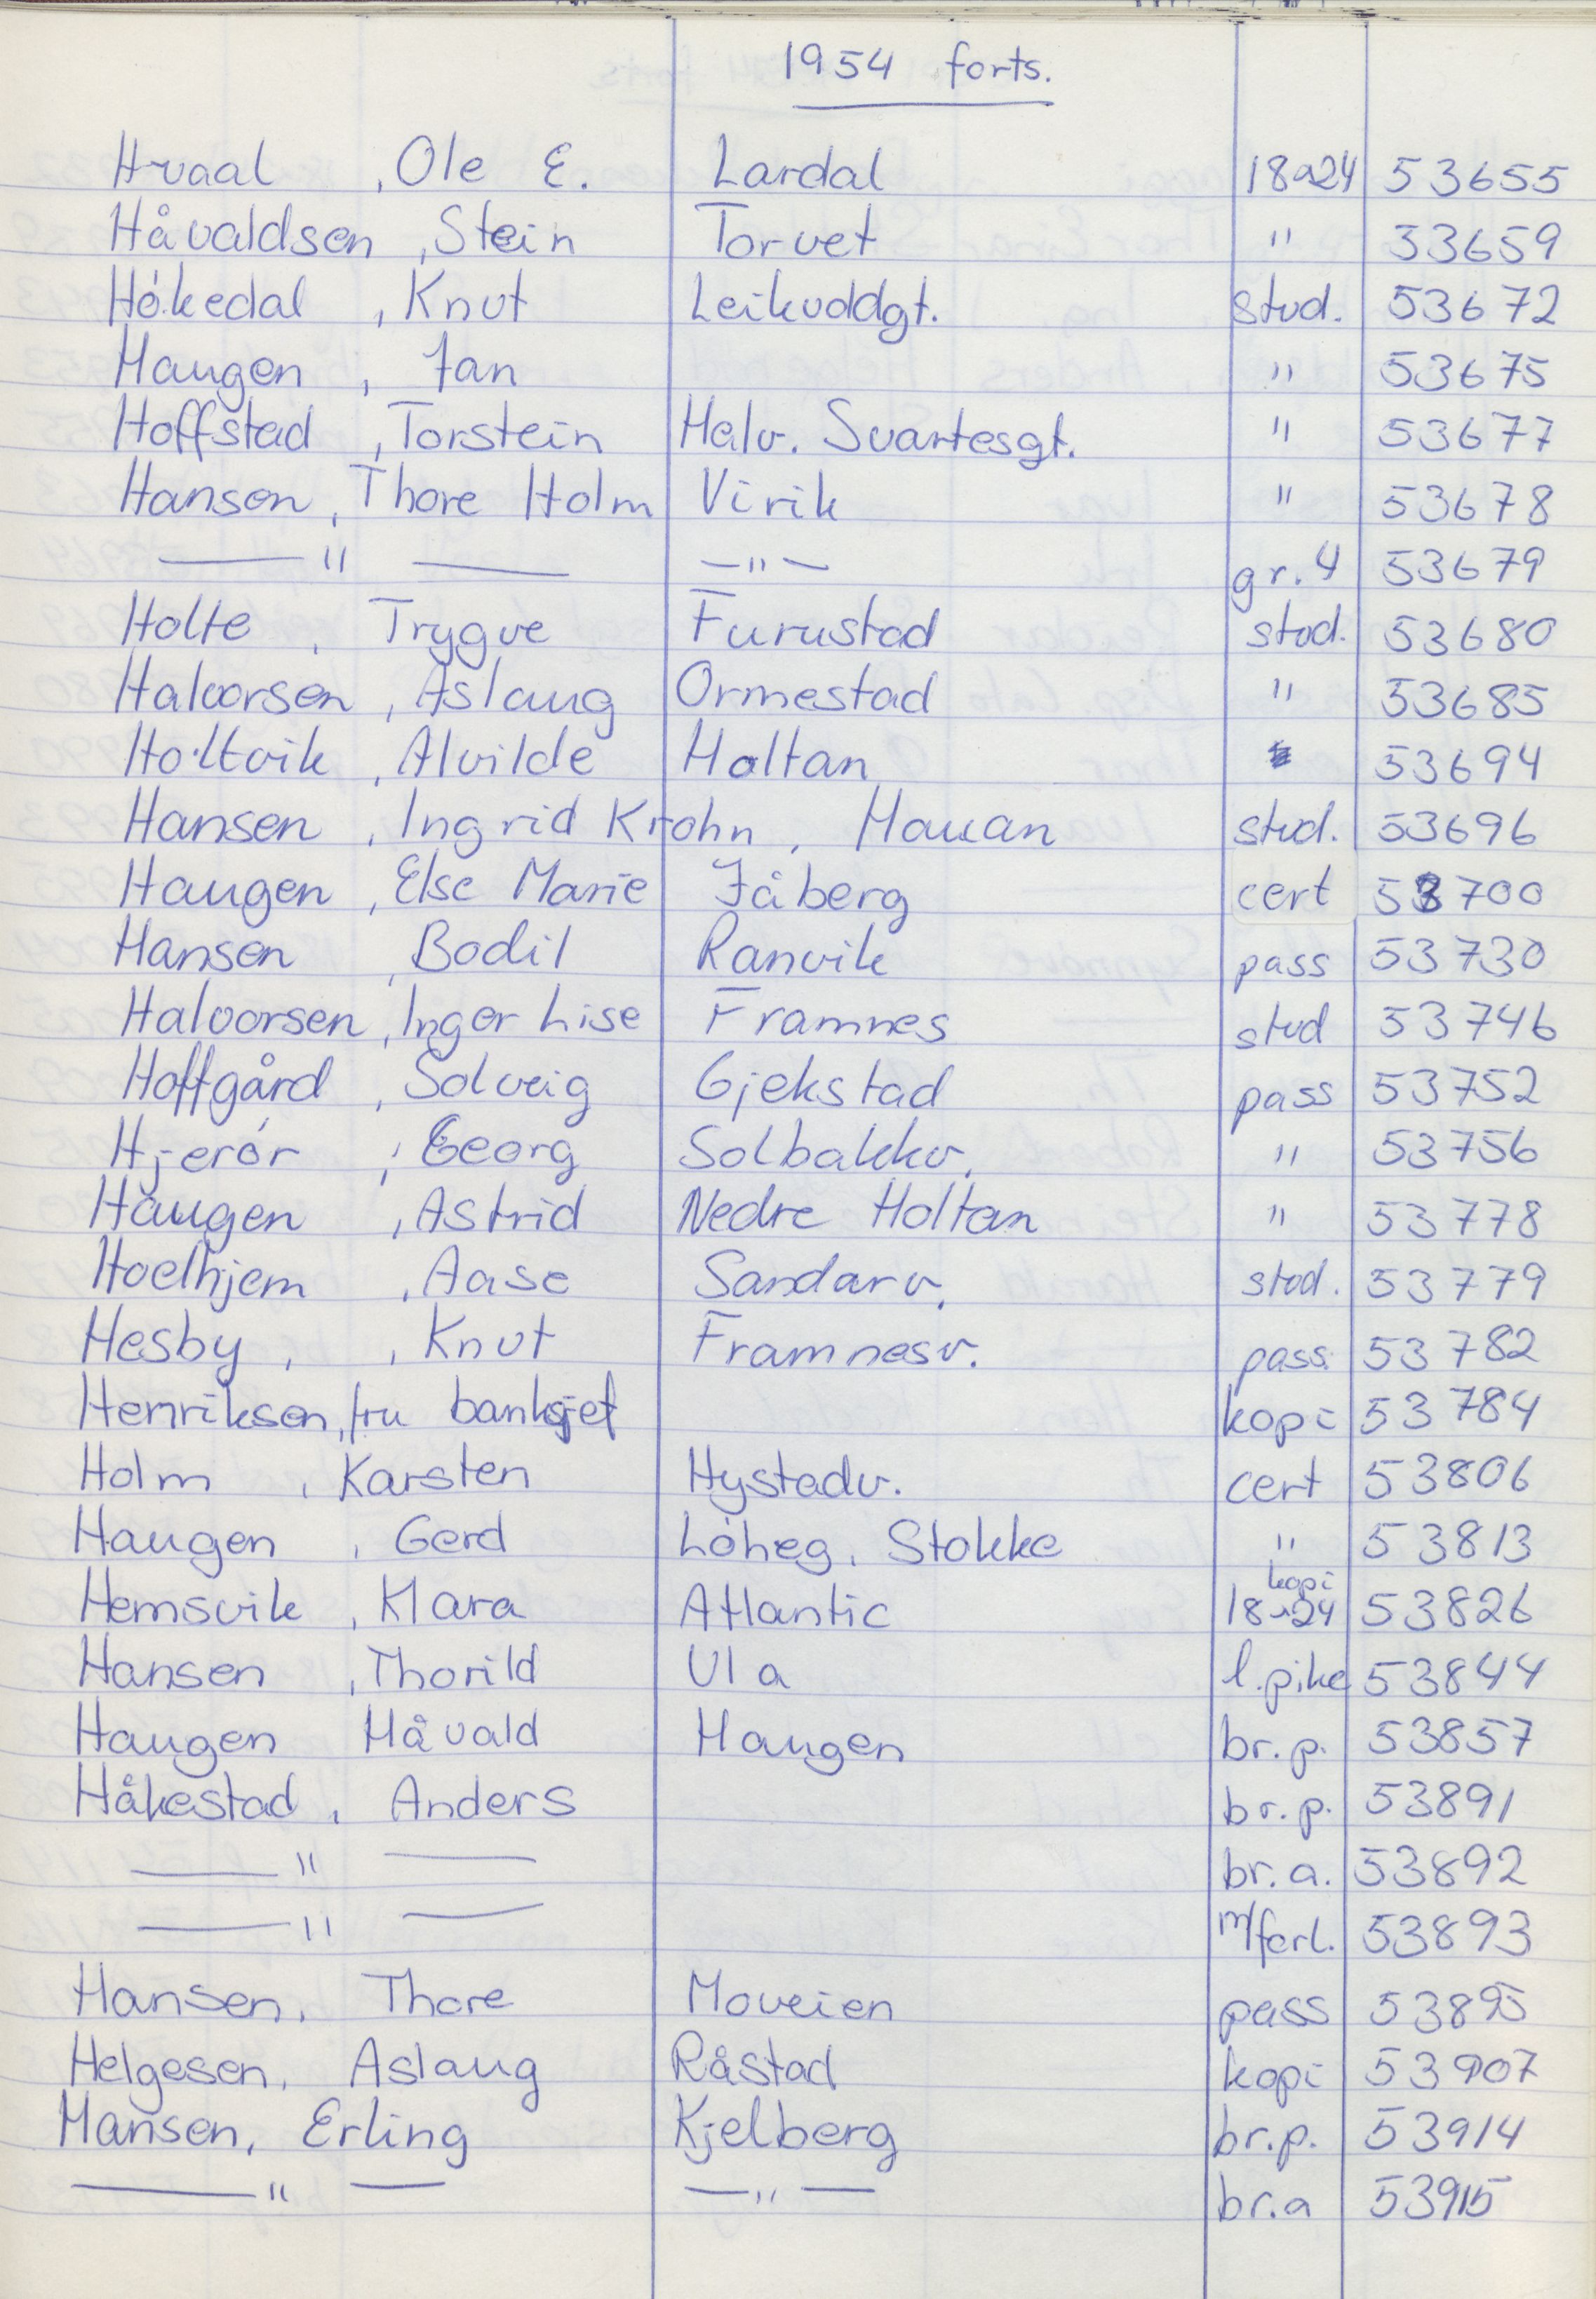 1954 forts.
Hvaal , Ole E. Lardal 18a24 53655
Håvaldsen , Stein Torvet " 53659
Hókedal , Knut Leikvollgt. stud. 53672
Haugen , Jan " 53675
Hoffstad , Torstein Halv. Svartesgt. " 53677
Hansen , Thore Holm Virik " 53678
— " — — " — gr. 4 53679
Holte , Trygve Furustad stud. 53680
Halvorsen , Aslaug Ormestad " 53685
Holtvik , Alvilde Haltan 53694
Hansen , Ingrid Krohn , Hauan stud. 53696
Haugen , Else Marie Jåberg cert 53700
Hansen , Bodil Ranvik pass 53730
Halvorsen , Inger Lise Framnes stud 53746
Hoffgård , Solveig Gjekstad pass 53752
Hjerór , Georg Solbakkv. " 53756
Haugen , Astrid Nedre Holtan " 53778
Hoelhjem , Aase Sandarv. stud. 53779
Hesby , , Knut Framnesv. pass. 53782
Henriksen, fru banksjef kopi 53784
Holm , Karsten Hystadv. cert 53806
Haugen , Gerd Lóheg. Stokke " 53813
Hemsvik , Klara Atlantic kopi 18a24 53826
Hansen , Thorild Ula l.pike 53844
Haugen Håvald Haugen br. p. 53857
Håkestad , Anders br. p. 53891
— " — br. a. 53892
— " — m/forl. 53893
Hansen, Thore Moveien pass 53895
Helgesen, Aslaug Råstad kopi 53907
Hansen, Erling Kjelberg br.p. 53914
— " — — " — br.a 53915